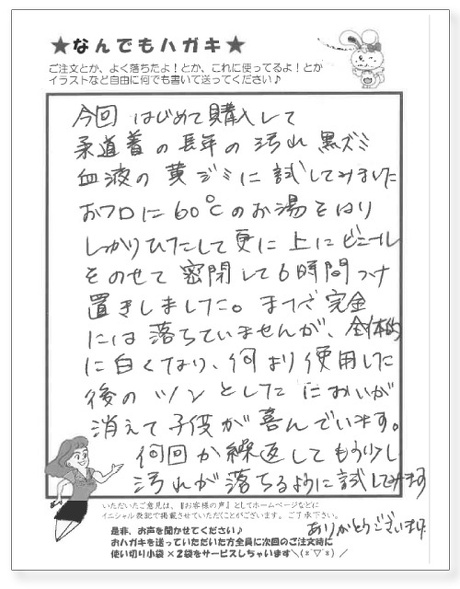 ★なんでもハガキ★
ご注文とか、よく落ちたよ！とか、これに使ってるよ！とか
イラストなど自由に何でも書いて送ってください♪
今回 はじめて購入して
柔道着の長年の汚れ 黒ズミ
血液の黄ジミに試してみました
おフロに60℃のお湯をはり
しっかりひたして更に上にビニール
をのせて密閉して6時間つけ
置きしました。まだ完全
には落ちていませんが、全体的
に白くなり、何より使用した
後のツンとした においが
消えて子供が喜んでいます。
何回か繰返してもう少し
汚れが落ちるように試してみます
ありがとうございます
いただいたご意見は、『お客様の声』としてホームページなどに
イニシャル表記で掲載させていただくことがございます。ご了承下さい。
是非、お声を聞かせてください♪
おハガキを送っていただいた方全員に次回のご注文時に
使い切り小袋×2袋をサービスしちゃいます＼(=ﾟ▽ﾟ=)／